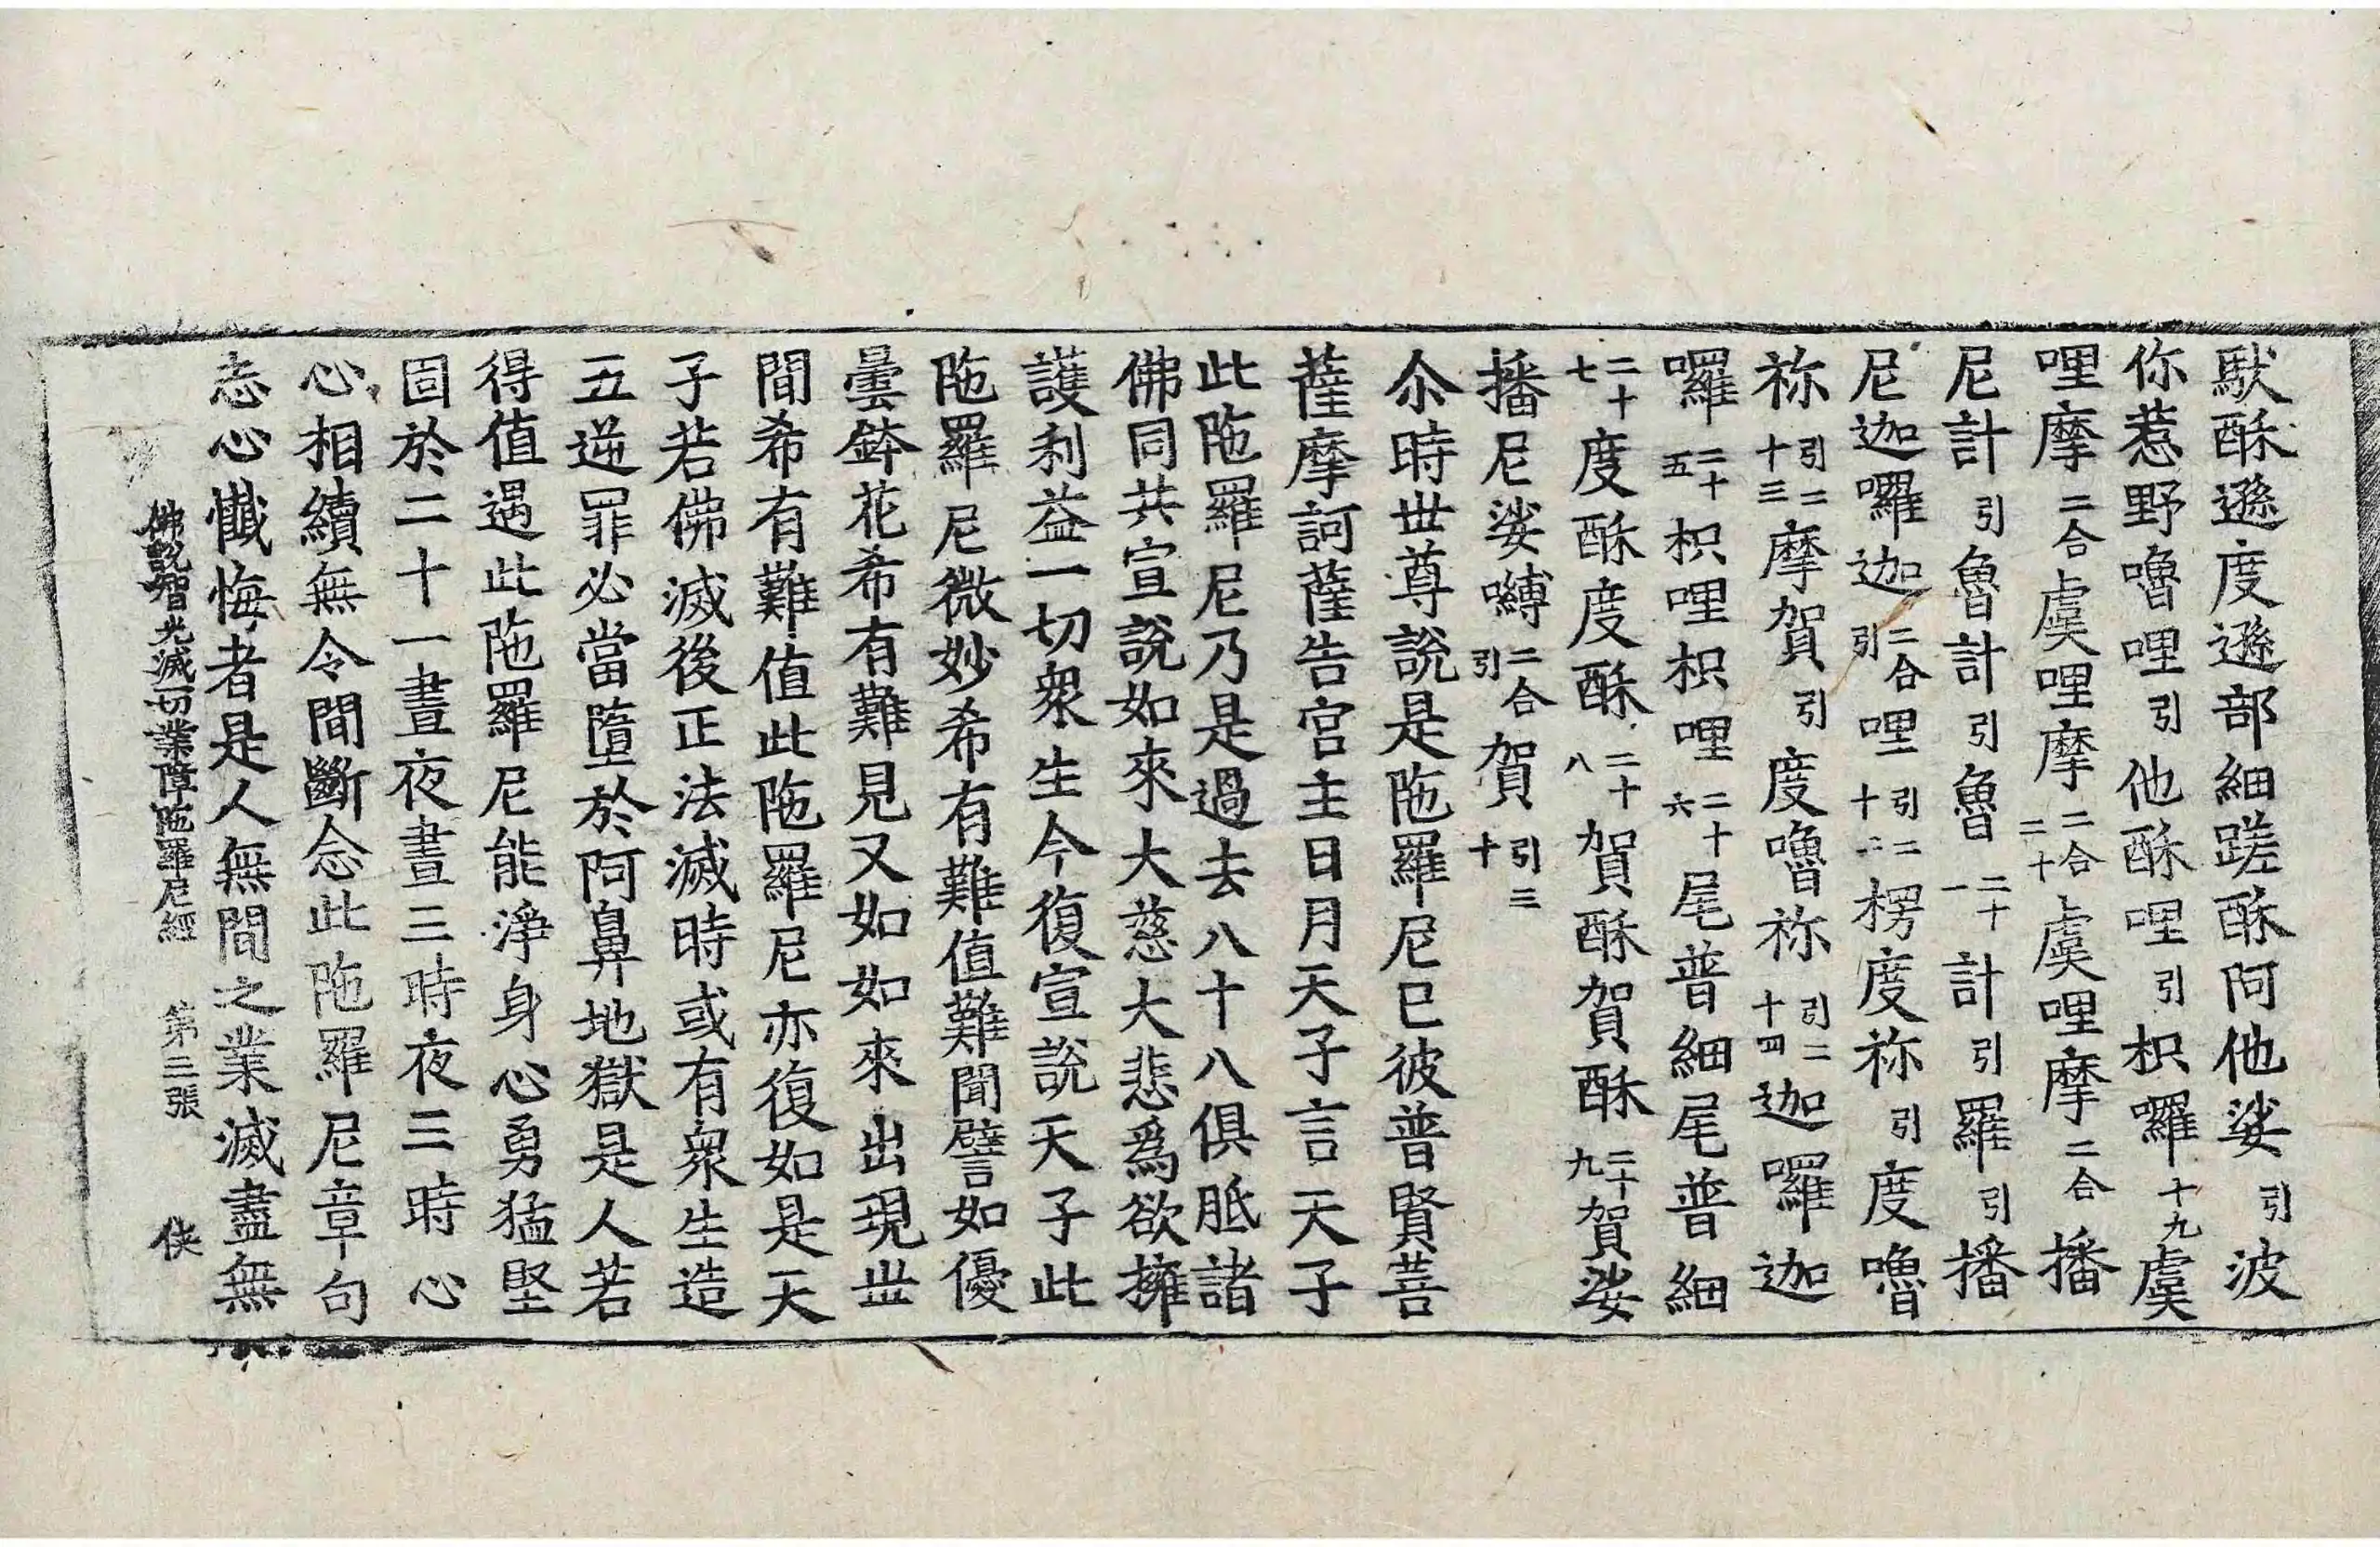 馱酥遜度遜部細蹉酥阿他娑引波
你惹野嚕哩引他酥哩引枳囉十九虞
哩摩二合虞哩摩二合二十虞哩摩二合播
尼計引魯計引魯二十一計引羅引播
尼迦囉迦二合引哩引二十二楞度祢引度嚕
祢引二十三摩賀引度嚕祢引二十四迦囉迦
囉二十五枳哩枳哩二十六尾普細尾普細
二十七度酥度酥二十八賀酥賀酥二十九賀娑
播尼娑嚩二合引賀引三十
尒時世尊說是陁羅尼已彼普賢菩
薩摩訶薩告宫主日月天子言天子
此陁羅尼乃是過去八十八俱胝諸
佛同共宣說如來大慈大悲爲欲擁
護利益一切衆生今復宣說天子此
陁羅尼微妙希有難值難聞譬如優
曇鉢花希有難見又如如來出現世
間希有難值此陁羅尼亦復如是天
子若佛滅後正法滅時或有衆生造
五逆罪必當墮於阿鼻地獄是人若
得值遇此陁羅尼能淨身心勇猛堅
固於二十一晝夜晝三時夜三時心
心相續無令間斷念此陁羅尼章句
志心懺悔者是人無間之業滅盡無
佛說智光滅一切業障陁羅尼經 第三張 俠